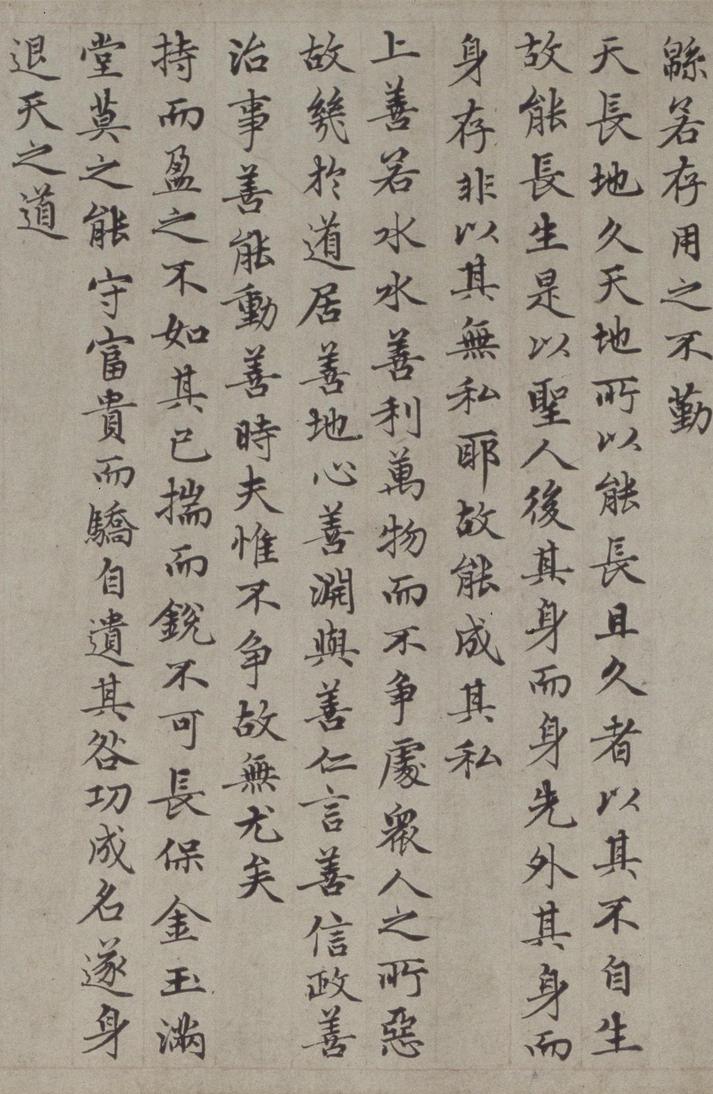 緜若存用之不勤
天長地久天地所以能長且久者以其不自生
故能長生是以聖人後其身而身先外其身而
身存非以其無私耶故能成其私
上善若水水善利萬物而不争處衆人之所惡
故幾於道居善地心善淵與善仁言善信政善
治事善能動善時夫惟不争故無尤矣
持而盈之不如其已揣而銳不可長保金玉滿
堂莫之能守富貴而驕自遺其咎功成名遂身
退天之道